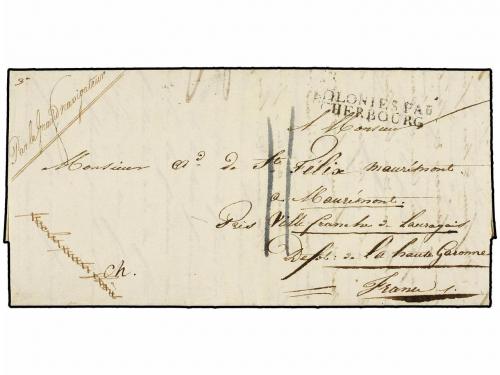 Par le grand navigateur
COLONIES PAR
CHERBOURG
A Monsieur
Monsieur de St. Félix maurémont
a Maurémont.
Près Ville franche de Lauragais
ch.
de la haute Garonne
France